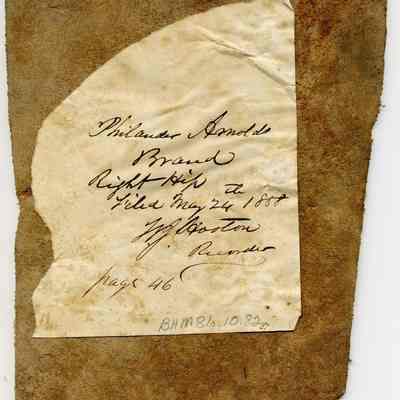 Philander Arnolds
Brand
Right Hip
Filed May 24th 1888
Hooton
Recorder
page 46
BHM86.10.82